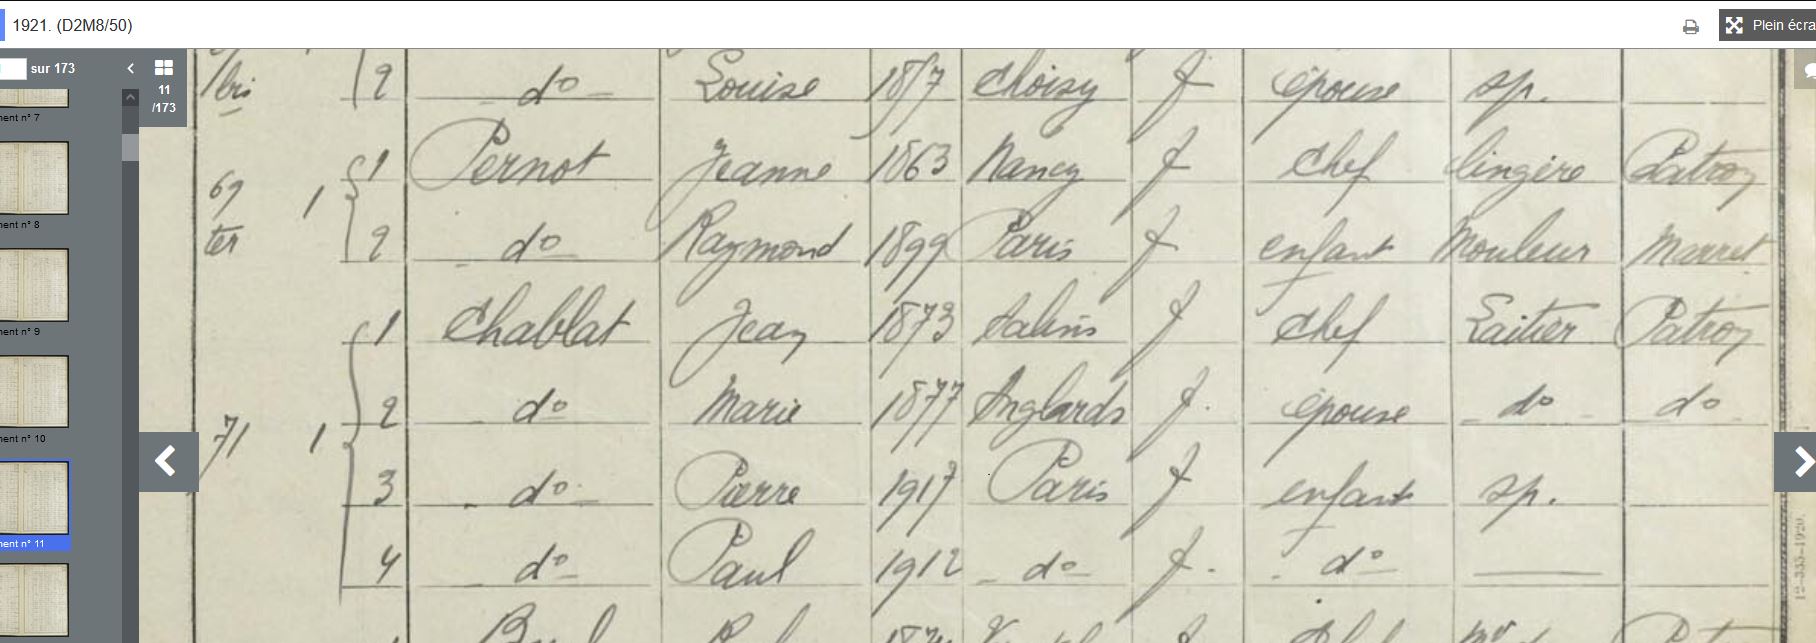 1921. (D2M8/50)
Plein écra
sur 173
11
/173
ment n° 7
ment n° 8
ment n° 9
ment n° 10
ment n° 11
bis 2 do Louise Choisy f épouse sp.
69 ter 1 1 Pernot Jeanne 1863 Nancy f chef lingère Patron
2 do Raymond 1899 Paris f enfant Mouleur Marret
71 1 1 Chablat Jean 1873 Salins f chef Laitier Patron
2 do Marie 1877 Anglards f. épouse do do
3 do Pierre 1917 Paris f enfant sp.
4 do Paul 1912 do f. do